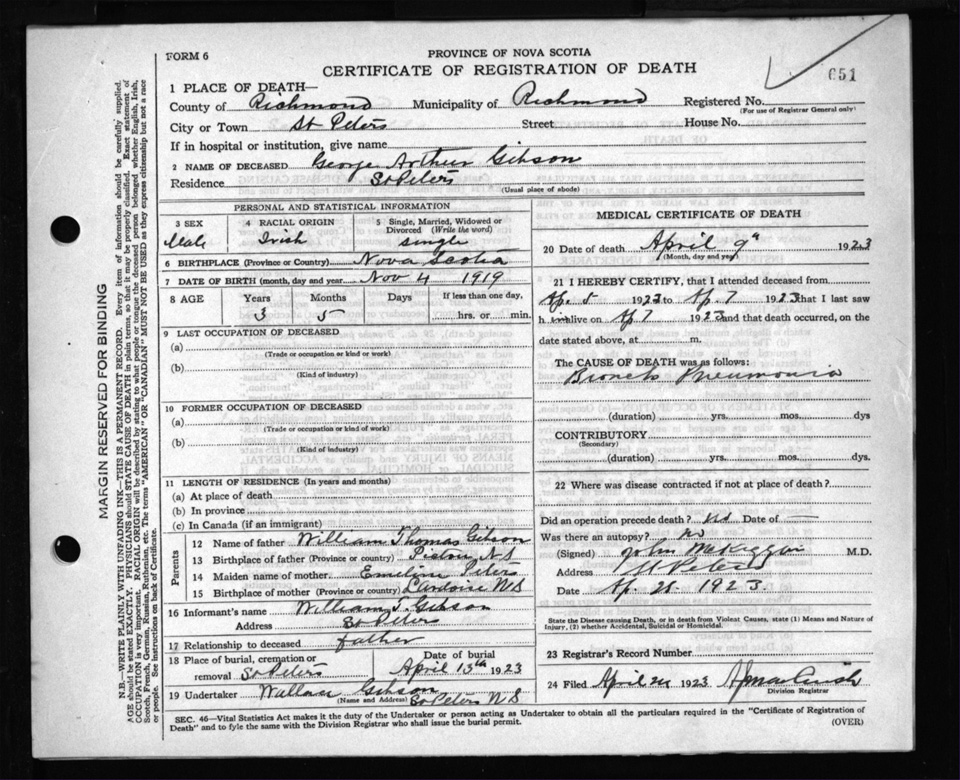 FORM 6
PROVINCE OF NOVA SCOTIA
CERTIFICATE OF REGISTRATION OF DEATH
651
1 PLACE OF DEATH—
County of Richmond Municipality of Richmond Registered No.
(For use of Registrar General only)
City or Town St Peters Street House No.
If in hospital or institution, give name
2 NAME OF DECEASED George Arthur Gibson
Residence St Peters
(Usual place of abode)
PERSONAL AND STATISTICAL INFORMATION
3 SEX 4 RACIAL ORIGIN 5 Single, Married, Widowed or Divorced (Write the word)
Male Irish single
6 BIRTHPLACE (Province or Country) Nova Scotia
7 DATE OF BIRTH (month, day and year) Nov 4 1919
8 AGE Years Months Days If less than one day,
3 5 hrs. or min.
9 LAST OCCUPATION OF DECEASED
(a)
(Trade or occupation or kind or work)
(b)
(Kind of industry)
10 FORMER OCCUPATION OF DECEASED
(a)
(Trade or occupation or kind of work)
(b)
(Kind of industry)
11 LENGTH OF RESIDENCE (In years and months)
(a) At place of death
(b) In province
(c) In Canada (if an immigrant)
Parents
12 Name of father William Thomas Gibson
13 Birthplace of father (Province or country) Pictou N.S
14 Maiden name of mother Emeline Peters
15 Birthplace of mother (Province or country) Lardoise N S
16 Informant's name William T. Gibson
Address St Peters
17 Relationship to deceased father
18 Place of burial, cremation or removal St Peters Date of burial April 13th 1923
19 Undertaker Wallace Gibson
(Name and Address) St Peters N S
MEDICAL CERTIFICATE OF DEATH
20 Date of death April 9th 1923
(Month, day and year)
21 I HEREBY CERTIFY, that I attended deceased from
Ap. 5 1923 to Ap. 7 1923 that I last saw
h im alive on Ap 7 1923 and that death occurred, on the
date stated above, at m.
The CAUSE OF DEATH was as follows:
Broncho Pneumonia
(duration) yrs. mos. dys
CONTRIBUTORY
(Secondary)
(duration) yrs. mos. dys.
22 Where was disease contracted if not at place of death?
Did an operation precede death? No Date of —
Was there an autopsy? no
(Signed) John M.D.
Address St Peters
Date Ap. 25 1923.
State the Disease causing Death, or in death from Violent Causes, state (1) Means and Nature of Injury, (2) whether Accidental, Suicidal or Homicidal.
23 Registrar's Record Number
24 Filed April 24 1923
Division Registrar
SEC. 46—Vital Statistics Act makes it the duty of the Undertaker or person acting as Undertaker to obtain all the particulars required in the "Certificate of Registration of
Death" and to fyle the same with the Division Registrar who shall issue the burial permit. (OVER)
MARGIN RESERVED FOR BINDING
N.B.—WRITE PLAINLY WITH UNFADING INK—THIS IS A PERMANENT RECORD. Every item of information should be carefully supplied.
AGE should be stated EXACTLY. PHYSICIANS should STATE CAUSE OF DEATH in plain terms, so that it may be properly classified. Exact statement of
OCCUPATION is very important. RACIAL ORIGIN will be described by stating to what people or tongue the deceased person belonged whether English, Irish,
Scotch, French, German, Russian, Ruthenian, etc. The terms "AMERICAN" OR "CANADIAN" MUST NOT BE USED as they express citizenship but not a race
or people. See instructions on back of Certificate.